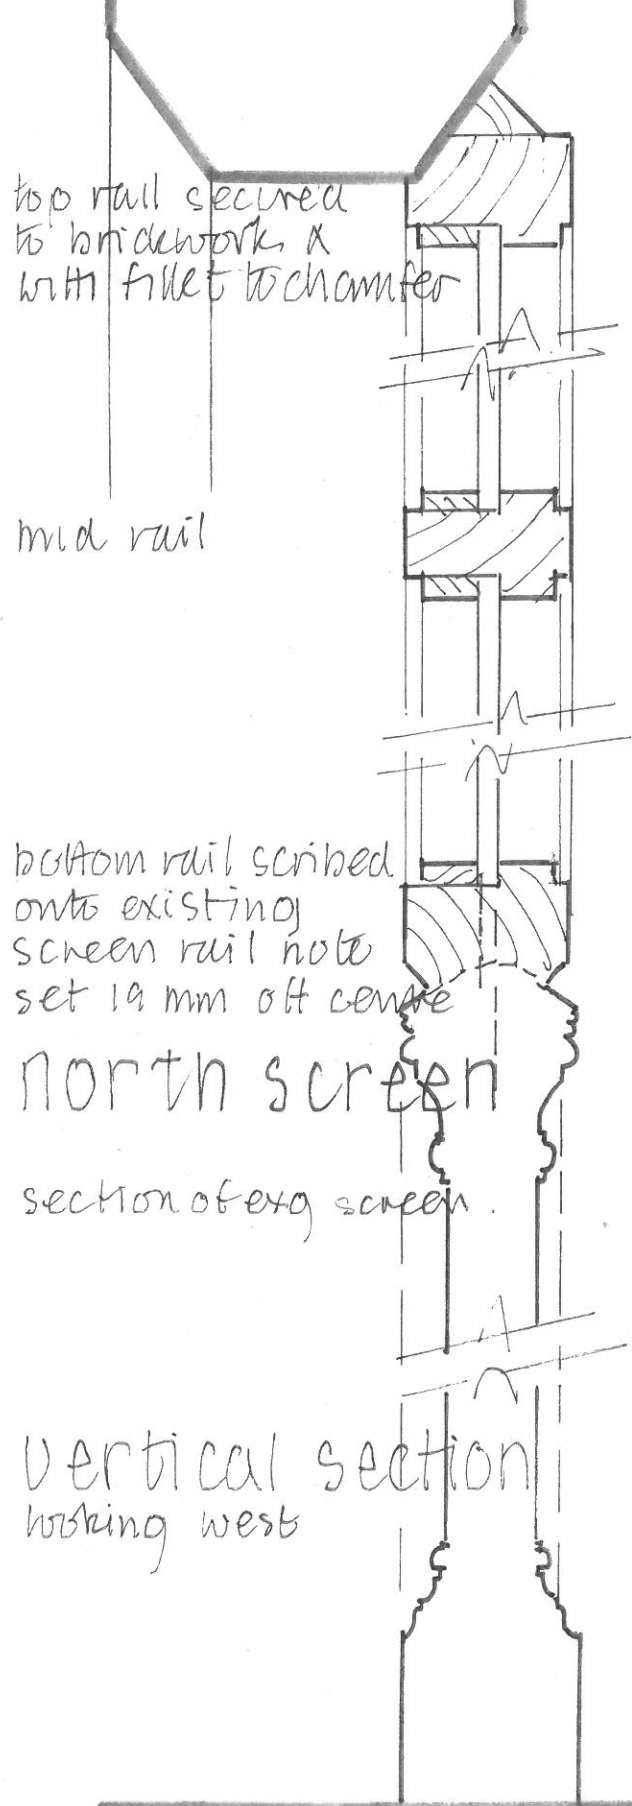 top rail secured
to brickwork &
with fillet to chamfer
mid rail
bottom rail scribed
onto existing
screen rail note
set 19 mm off centre
north screen
section of exg screen.
vertical section
looking west